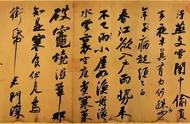 污燕支雪闇中偷負
去夜半真有力何殊少
年病起頭已白
春江欲入戶雨勢來
不已小屋如漁舟濛濛
水雲裏空庖煮寒菜
破竈燒濕葦那
知是寒食但見烏
銜帋君門深